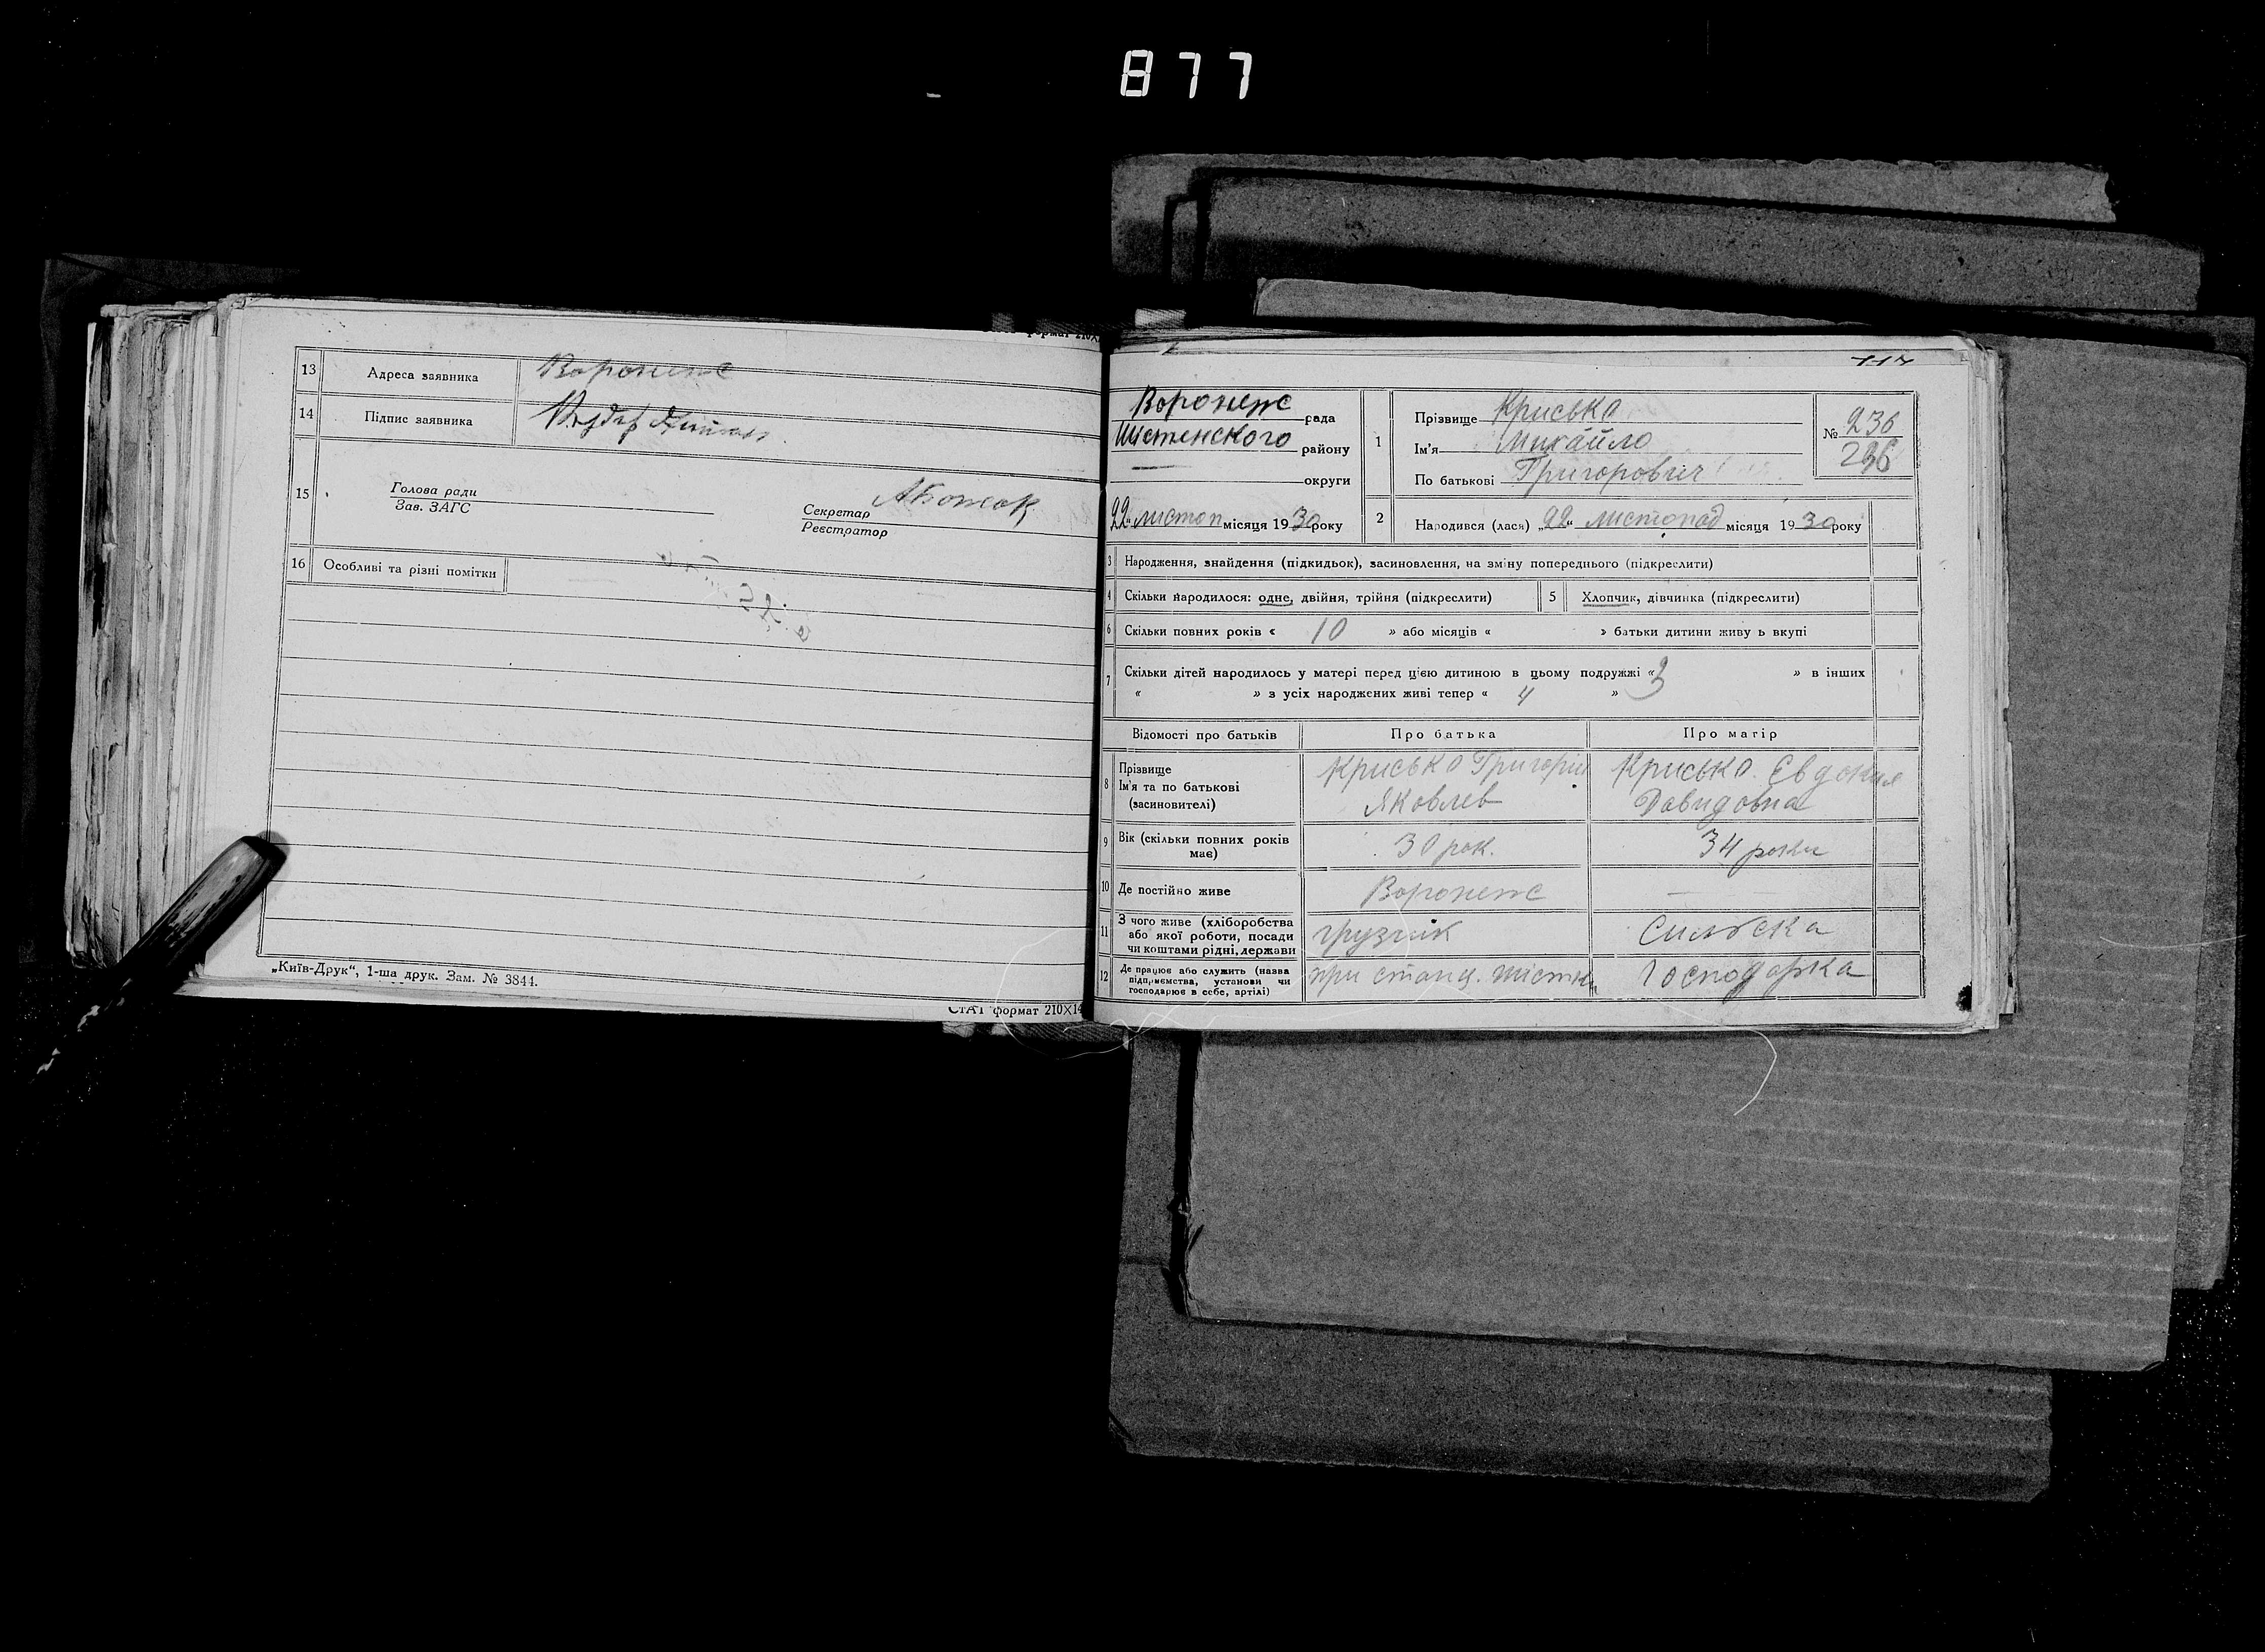 877
формат 210X
13 Адреса заявника Воронеж
14 Підпис заявника
15 Голова ради
Зав. ЗАГС
Секретар
Реєстратор
16 Особливі та різні помітки — —
„Київ-Друк“, 1-ша друк. Зам. № 3844.
СТАТ формат 210X14
117
Воронеж рада
Шістенского району
— округи
22 „ листоп місяця 1930 року
1 Прізвище Крисько
Ім'я Михайло
По батькові Григорович
№ 236
236
2 Народився (лася) „22“ листопад місяця 1930 року
3 Народження, знайдення (підкидьок), засиновлення, на зміну попереднього (підкреслити)
4 Скільки народилося: одне, двійня, трійня (підкреслити)
5 Хлопчик, дівчинка (підкреслити)
6 Скільки повних років « 10 » або місяців « » батьки дитини живу ь вкупі
7 Скільки дітей народилось у матері перед цією дитиною в цьому подружжі « 3 » в інших
« » з усіх народжених живі тепер « 4 »
Відомості про батьків Про батька Про матір
8 Прізвище
Ім'я та по батькові
(засиновителі)
Крисько Григорій
Яковлев
Крисько Євдокия
Давидовна
9 Вік (скільки повних років
має)
30 рок.
34 роки
10 Де постійно живе Воронеж —
11 З чого живе (хліборобства
або якої роботи, посади
чи коштами рідні, держави
грузчик
Сильска
12 Де працює або служить (назва
підприємства, установи чи
господарює в себе, артілі)
при станц. Шістки
господарка